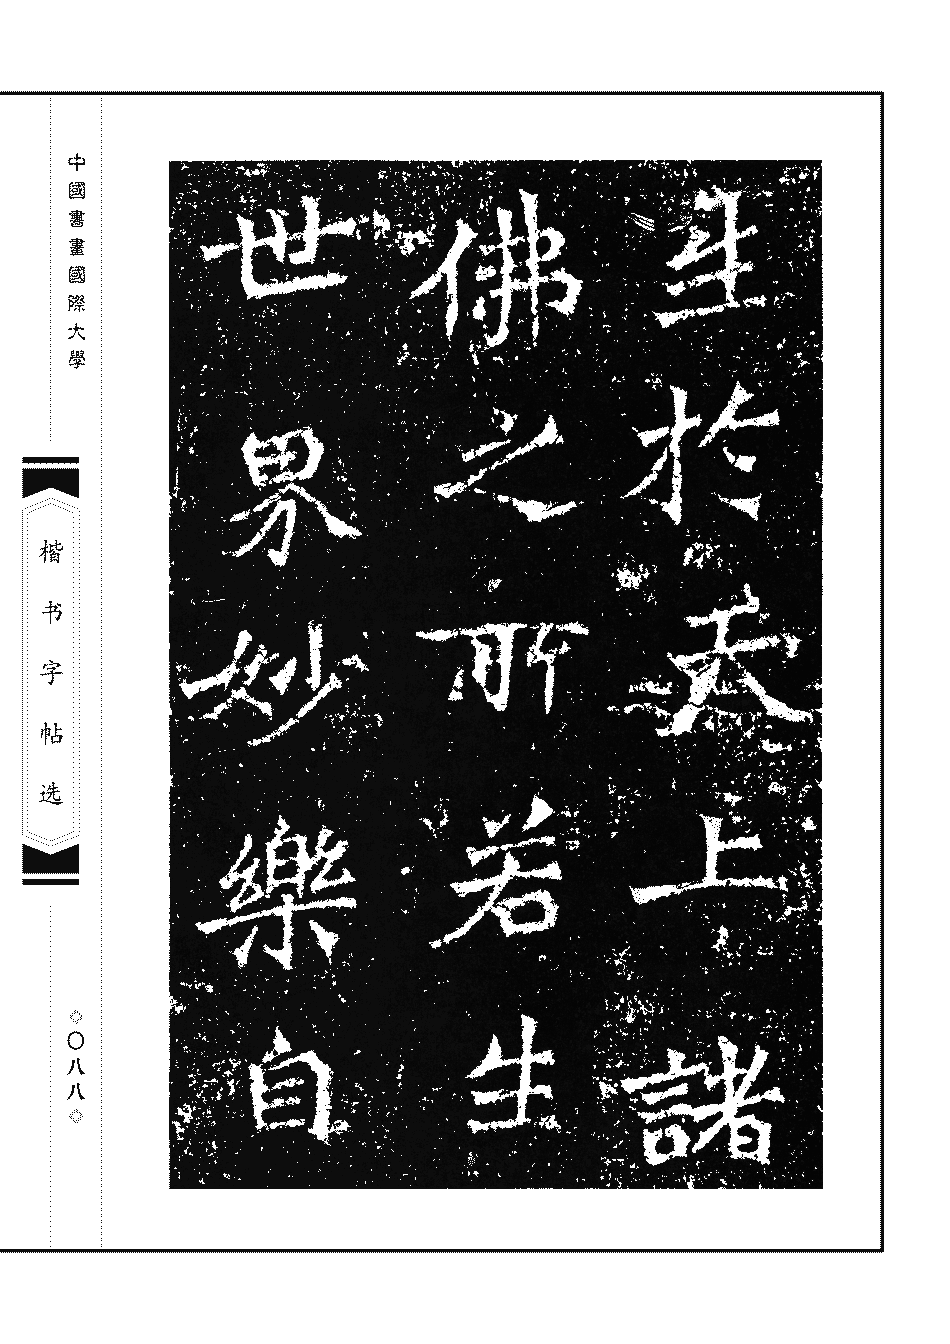 生於天上諸
佛之所若生
世界妙樂自
中國書畫國際大學
楷书字帖选
◇〇八八◇